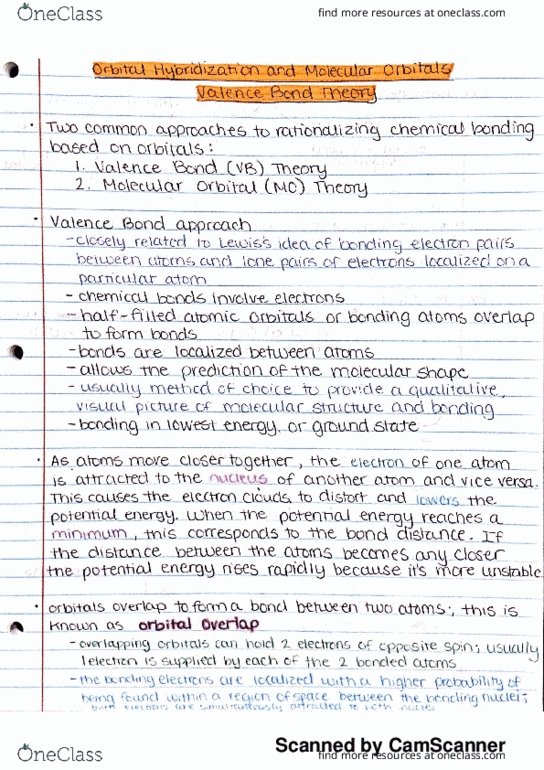 OneClass
find more resources at oneclass.com
Orbital Hybridization and Molecular Orbitals
Valence Bond Theory
• Two common approaches to rationalizing chemical bonding
based on orbitals:
1. Valence Bond (VB) Theory
2. Molecular Orbital (MO) Theory
• Valence Bond approach
- closely related to Lewis's idea of bonding electron pairs
between atoms and lone pairs of electrons localized on a
particular atom
- chemical bonds involve electrons
- half-filled atomic orbitals or bonding atoms overlap
to form bonds
- bonds are localized between atoms
- allows the prediction of the molecular shape
- usually method of choice to provide a qualitative,
visual picture of molecular structure and bonding
- bonding in lowest energy, or ground state
• As atoms move closer together, the electron of one atom
is attracted to the nucleus of another atom and vice versa.
This causes the electron clouds to distort and lowers the
potential energy. When the potential energy reaches a
minimum, this corresponds to the bond distance. If
the distance between the atoms becomes any closer
the potential energy rises rapidly because it's more unstable
• orbitals overlap to form a bond between two atoms; this is
known as orbital overlap
- overlapping orbitals can hold 2 electrons of opposite spin; usually
1 election is supplied by each of the 2 bonded atoms
- the bonding electrons are localized with a higher probability of
being found within a region of space between the bending nuclei;
bond electrons are simultaneously attracted to both nuclei
Scanned by CamScanner
OneClass
find more resources at oneclass.com